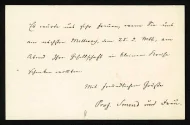 Es würde uns sehr freuen, wenn Sie uns
am nächsten Mittwoch, den 25. d. Mts., am
Abend Ihre Gesellschaft in kleinem Kreise
schenken wollten.
Mit freundlichem Gruße
Prof. Smend und Frau.